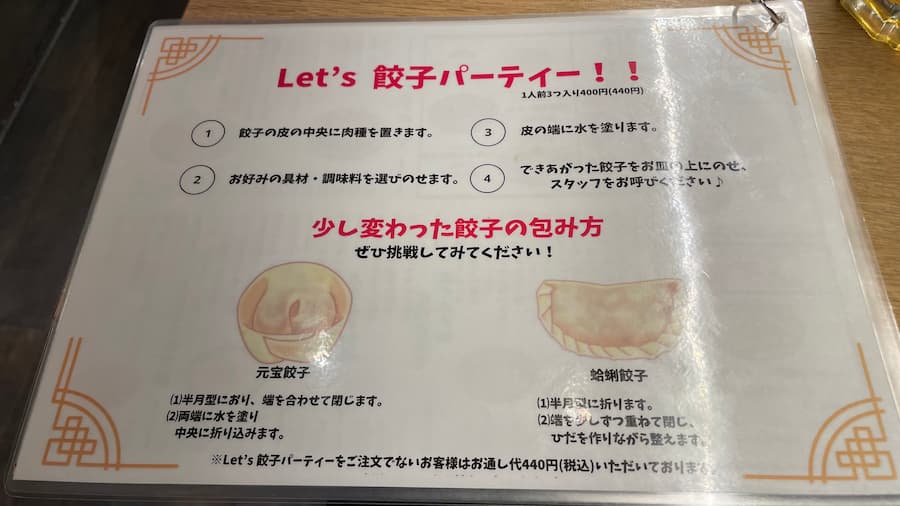 Let's 餃子パーティー！！
1人前3つ入り400円(440円)
1 餃子の皮の中央に肉種を置きます。
2 お好みの具材・調味料を選びのせます。
3 皮の端に水を塗ります。
4 できあがった餃子をお皿の上にのせ、
スタッフをお呼びください♪
少し変わった餃子の包み方
ぜひ挑戦してみてください！
元宝餃子
⑴半月型におり、端を合わせて閉じます。
⑵両端に水を塗り
中央に折り込みます。
蛤蜊餃子
⑴半月型に折ります。
⑵端を少しずつ重ねて閉じ、
ひだを作りながら整えます。
※Let's 餃子パーティーをご注文でないお客様はお通し代440円(税込)いただいております。